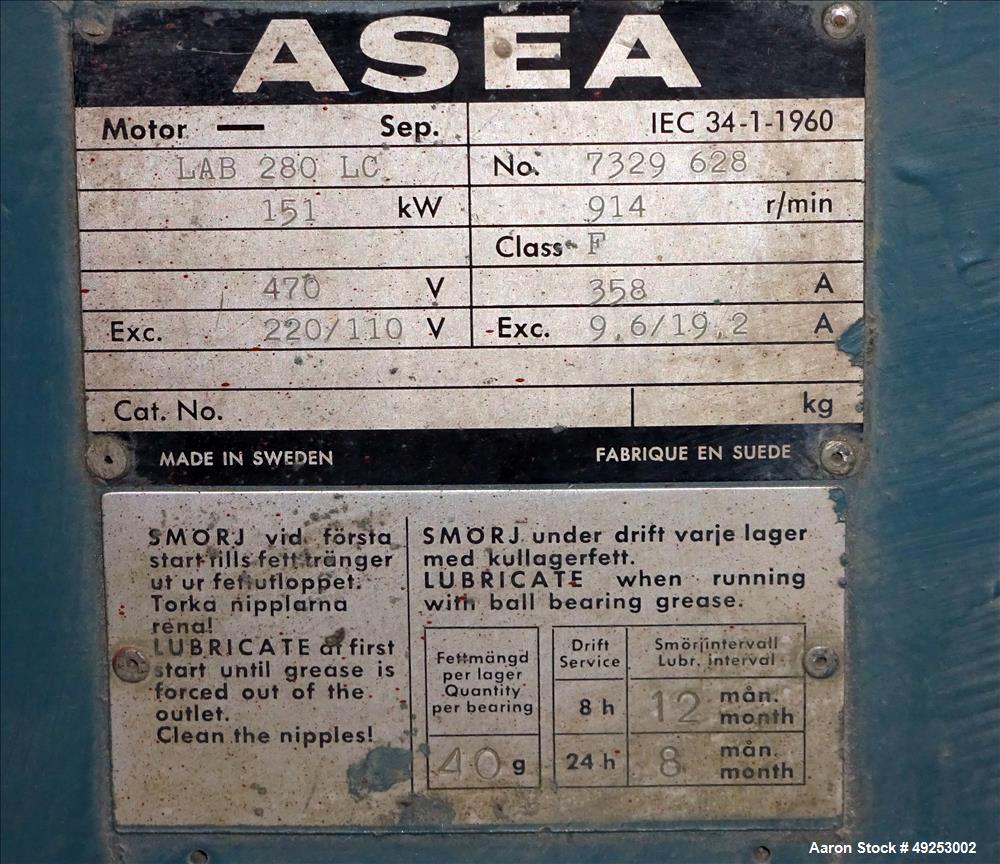 ASEA
Motor — Sep. IEC 34-1-1960
LAB 280 LC No. 7329 628
151 kW 914 r/min
Class F
470 V 358 A
Exc. 220/110 V Exc. 9,6/19,2 A
Cat. No. kg
MADE IN SWEDEN FABRIQUE EN SUEDE
SMÖRJ vid första
start tills fett tränger
ut ur fettutloppet.
Torka nipplarna
rena!
LUBRICATE at first
start until grease is
forced out of the
outlet.
Clean the nipples!
SMÖRJ under drift varje lager
med kullagerfett.
LUBRICATE when running
with ball bearing grease.
Fettmängd
per lager
Quantity
per bearing
40 g
Drift
Service
Smörjintervall
Lubr. interval
8 h 12 mån.
month
24 h 8 mån.
month
Aaron Stock # 49253002